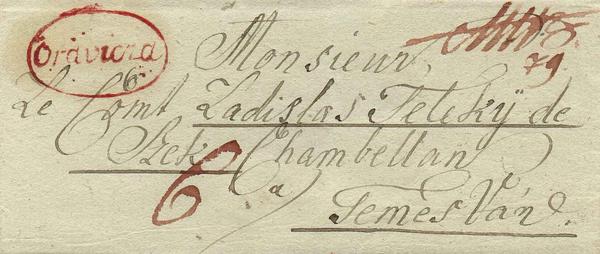 Oravicza
Monsieur,
79
Le Comt Ladislas Teleky de
Szek Chambellan
6
a
Temesvár.